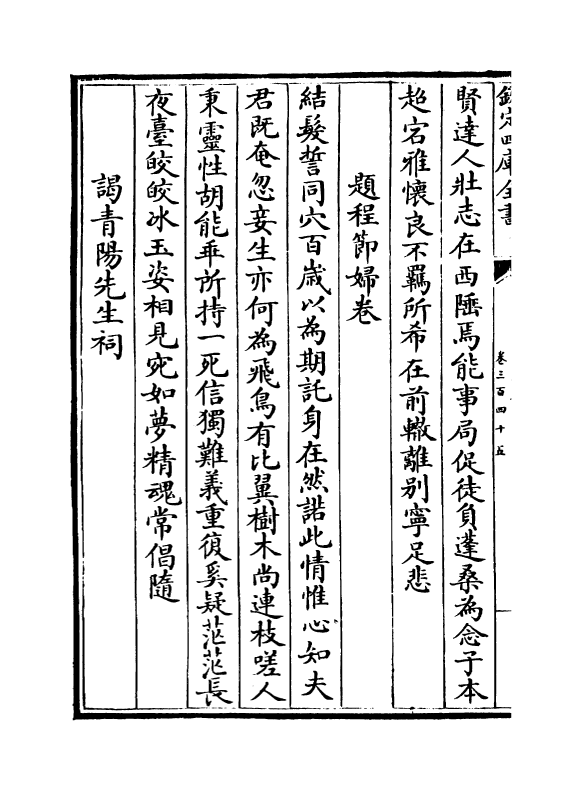 欽定四庫全書
卷三百四十五
賢達人壯志在西陲焉能事局促徒負蓬桑為念子本
超宕雅懷良不羈所希在前轍離别寧足悲
題程節婦卷
結髮誓同穴百歲以為期託身在然諾此情惟心知夫
君既奄忽妾生亦何為飛鳥有比翼樹木尚連枝嗟人
秉靈性胡能乖所持一死信獨難義重復奚疑茫茫長
夜臺皎皎冰玉姿相見宛如夢精魂常倡隨
謁青陽先生祠